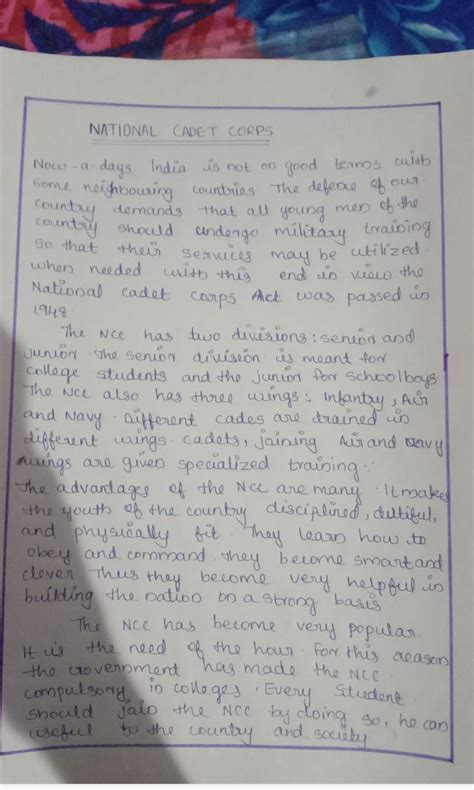 NATIONAL CADET CORPS
Now-a-days India is not on good terms with
some neighbouring countries The defence of our
country demands that all young men of the
country should undergo military training
so that their services may be utilized
when needed with this end in view the
National cadet corps Act was passed in
1948
The NCC has two divisions: senior and
junior. The senior division is meant for
college students and the junior for schoolboys
The NCC also has three wings: Infantry, Air
and Navy. Different cades are trained in
different wings. cadets, joining Air and Navy
wings are given specialized training.
The advantages of the NCC are many. It makes
the youth of the country disciplined, dutiful,
and physically fit. They learn how to
obey and command they become smart and
clever. Thus they become very helpful in
building the nation on a strong basis
The NCC has become very popular.
It is the need of the hour. for this reason
the Government has made the NCC
compulsory in colleges. Every student
should join the NCC by doing so, he can
useful to the country and society